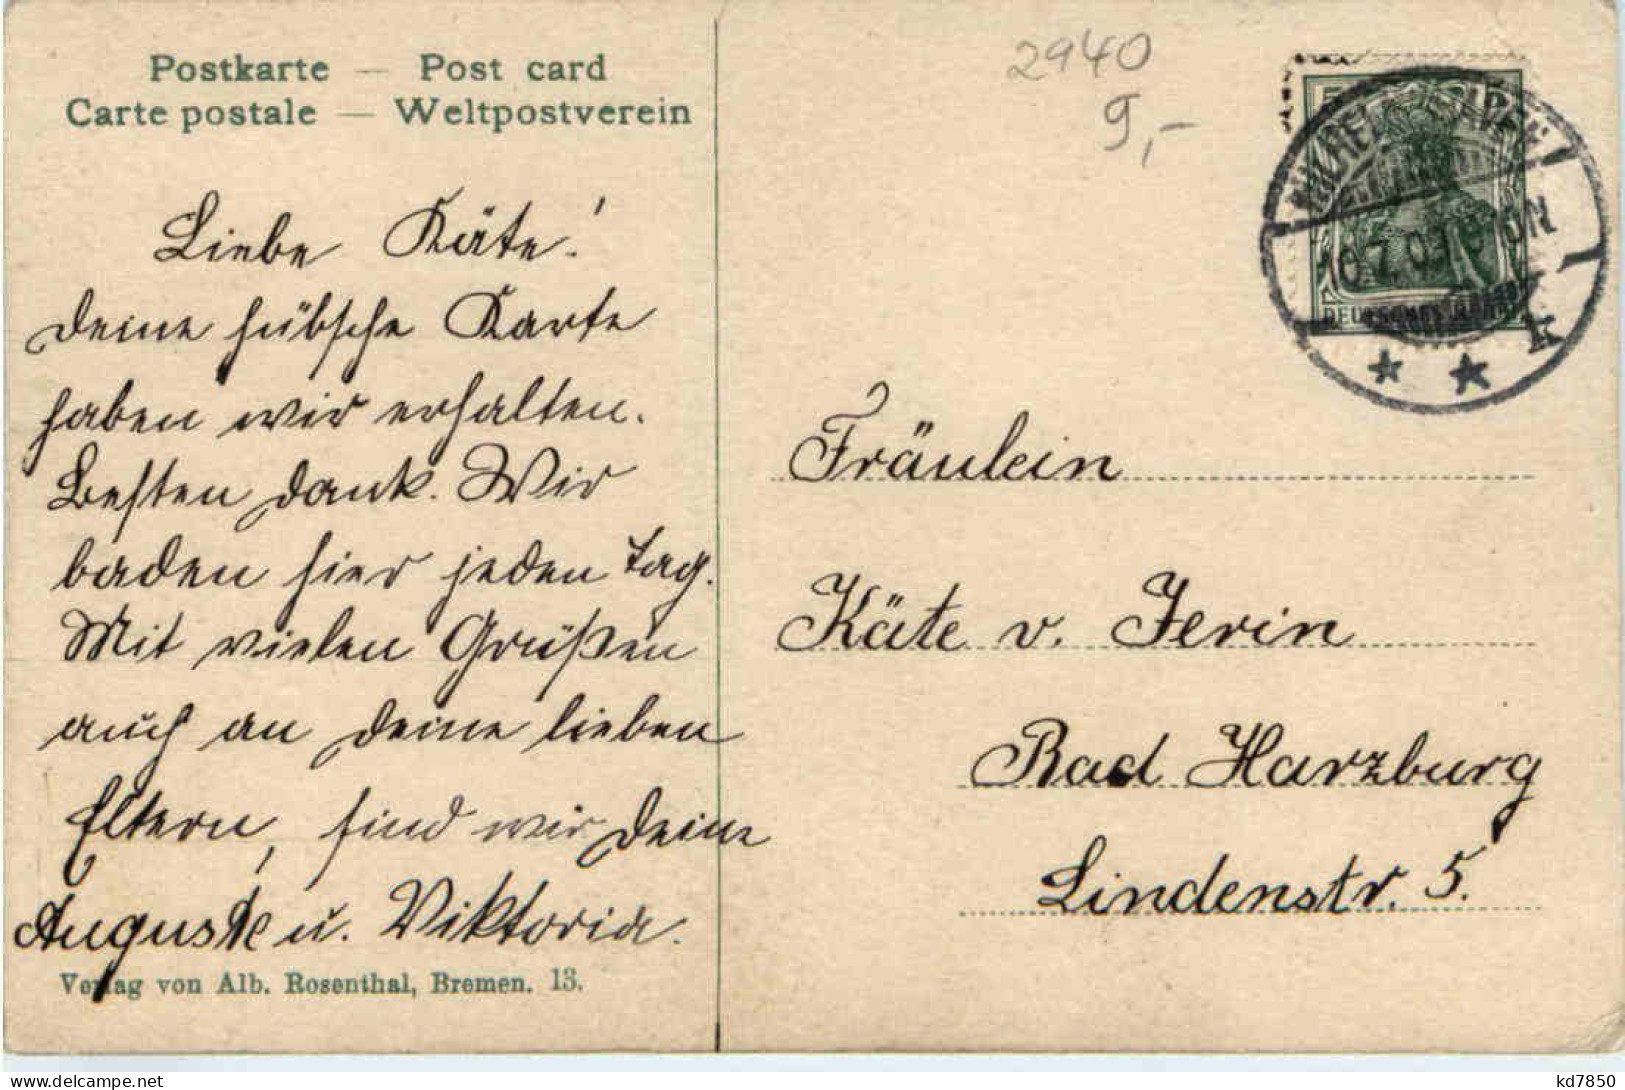 Postkarte — Post card
Carte postale — Weltpostverein
2940
9,-
Liebe Käte!
Deine hübsche Karte
haben wir erhalten.
Besten Dank. Wir
baden hier jeden Tag.
Mit vielen Grüßen
auch an Deine lieben
Eltern, sind wir Deine
Auguste u. Viktoria.
Verlag von Alb. Rosenthal, Bremen. 13.
DEUTSCHES REICH
Fräulein
Käte v. Ferin
Bad Harzburg
Lindenstr. 5.
kd7850